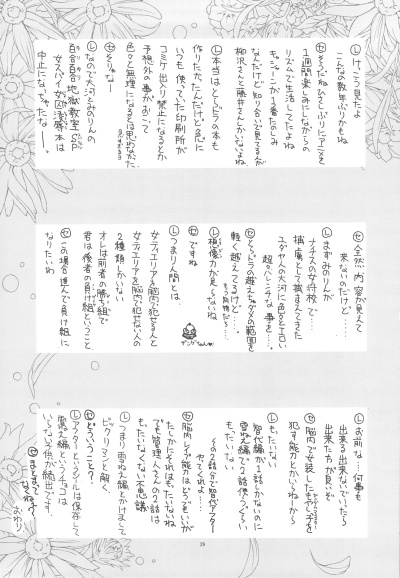 Ⓛけっこう見たよ
こんなの数年ぶりかもね
Ⓢそうだねひさしぶりにアニメを
1週間楽しみにしながらの
リズムで生活してたよね
キャシャーンが1番たのしみ
なんだけど知り合いで見てるのが
柳沢さんと藤井さんしかいないよね
Ⓛ本当はとらドラの本も
作りたかったんだけど急に
いつも使っていた印刷所が
コミケ出入り禁止になるとか
予想外の事がおこって
色々と無理になるとは思わなかった
Ⓢそりゃなー
Ⓛなので大河とみのりんの
百合百合地獄教室SP
女スパイ
中止になっちゃったなー。
Ⓢ全然内容が見えて
来ないのだけど……
Ⓛまずみのりんが
ナチスの女将校で…
捕虜として捕まえてきた
ユダヤ人の大河に色々とエロい
超ハレンチな事を……。
Ⓢとらドラの越えちゃダメの範囲を
軽く越えてるけど…
Ⓛ想像力が足らないね
Ⓢですね
Ⓛつまり人間とは
女ティエリアを脳内で犯せる人と
女ティエリアを脳内で犯せない人の
2種類しかいない
オレは前者の勝ち組で
君は後者の負け組ということ
Ⓢこの場合進んで負け組に
なりたいわ
Ⓛお前な…何事も
出来る出来ないでいたら
出来た方が良いぞ
Ⓢ脳内で女装した
犯す能力とかいらねーから
Ⓛもったいない
智代編が1話しかないのに
雪ねぇ編で2話使うぐらい
もったいない
その2話分で智代アフター
やってくれよ…
Ⓢ脳内レイプ能力はどうでもいいが
たしかにそれはもったいないね
でも管理人さんの2話は
もったいなくない不思議
Ⓛつまり雪ねぇ編とかけまして
ビックリマンと解く
Ⓢどういうこと？
Ⓛアフターというシールは保存して
雪ねぇ編というチョコは
いらない子供が続出です。
Ⓢまとまって
おわり
29